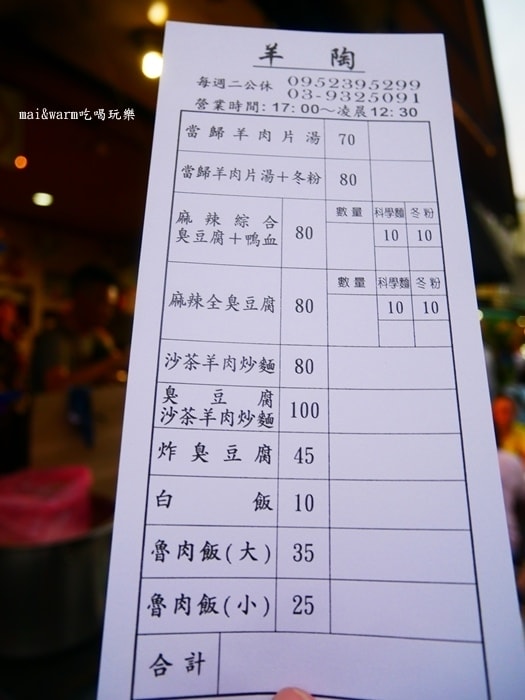 mai&warm吃喝玩樂
羊 陶
每週二公休 0952395299
03-9325091
營業時間: 17:00～凌晨12:30
當歸羊肉片湯 70
當歸羊肉片湯+冬粉 80
麻辣綜合
臭豆腐+鴨血 80 數量 科學麵 冬粉
10 10
麻辣全臭豆腐 80 數量 科學麵 冬粉
10 10
沙茶羊肉炒麵 80
臭豆腐
沙茶羊肉炒麵 100
炸臭豆腐 45
白飯 10
魯肉飯(大) 35
魯肉飯(小) 25
合計